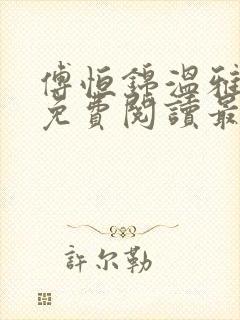 傅恒錦溫雅
免費閱讀最
許尔勒